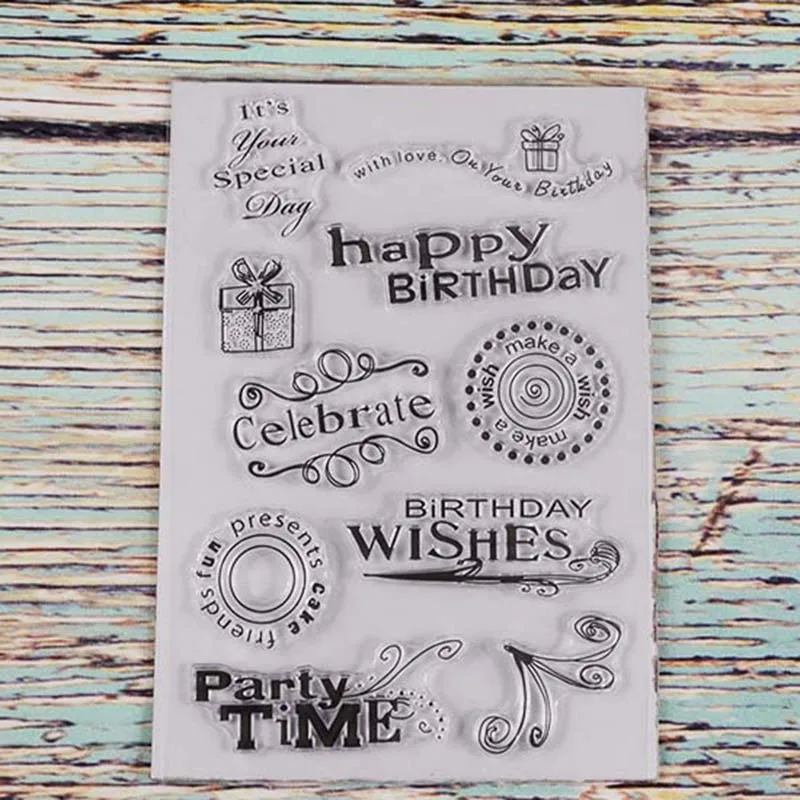 It's
Your
Special
Day
with love. On Your Birthday
happy
BiRTHDaY
Celebrate
make a wish make a wish
fun presents cake friends
BiRTHDAY
WiSHES
Party
TiME